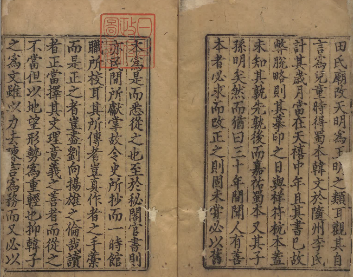 田氏廟改天明為于明之類耳觀其自
言為兒童時得蜀本韓文於隨州李氏
計其歲月當在天禧中年且其書已故
弊脫略則其摹印之日與祥符杭本蓋
未知其孰先孰後而嘉祐蜀本又其子
孫明矣然而猶曰三十年間聞人有善
本者必求而改正之則固未嘗必以舊
本為是而悉從之也至於祕閣官書則
亦民間所獻掌故令史所抄而一時館
職所校耳其所傳者豈真作者之手藁
而是正之者豈盡劉向揚雄之倫哉讀
者正當擇其文理意義之善者而從之
不當但以地望形勢為重輕也抑韓子
之為文雖以力去陳言為務而又必以